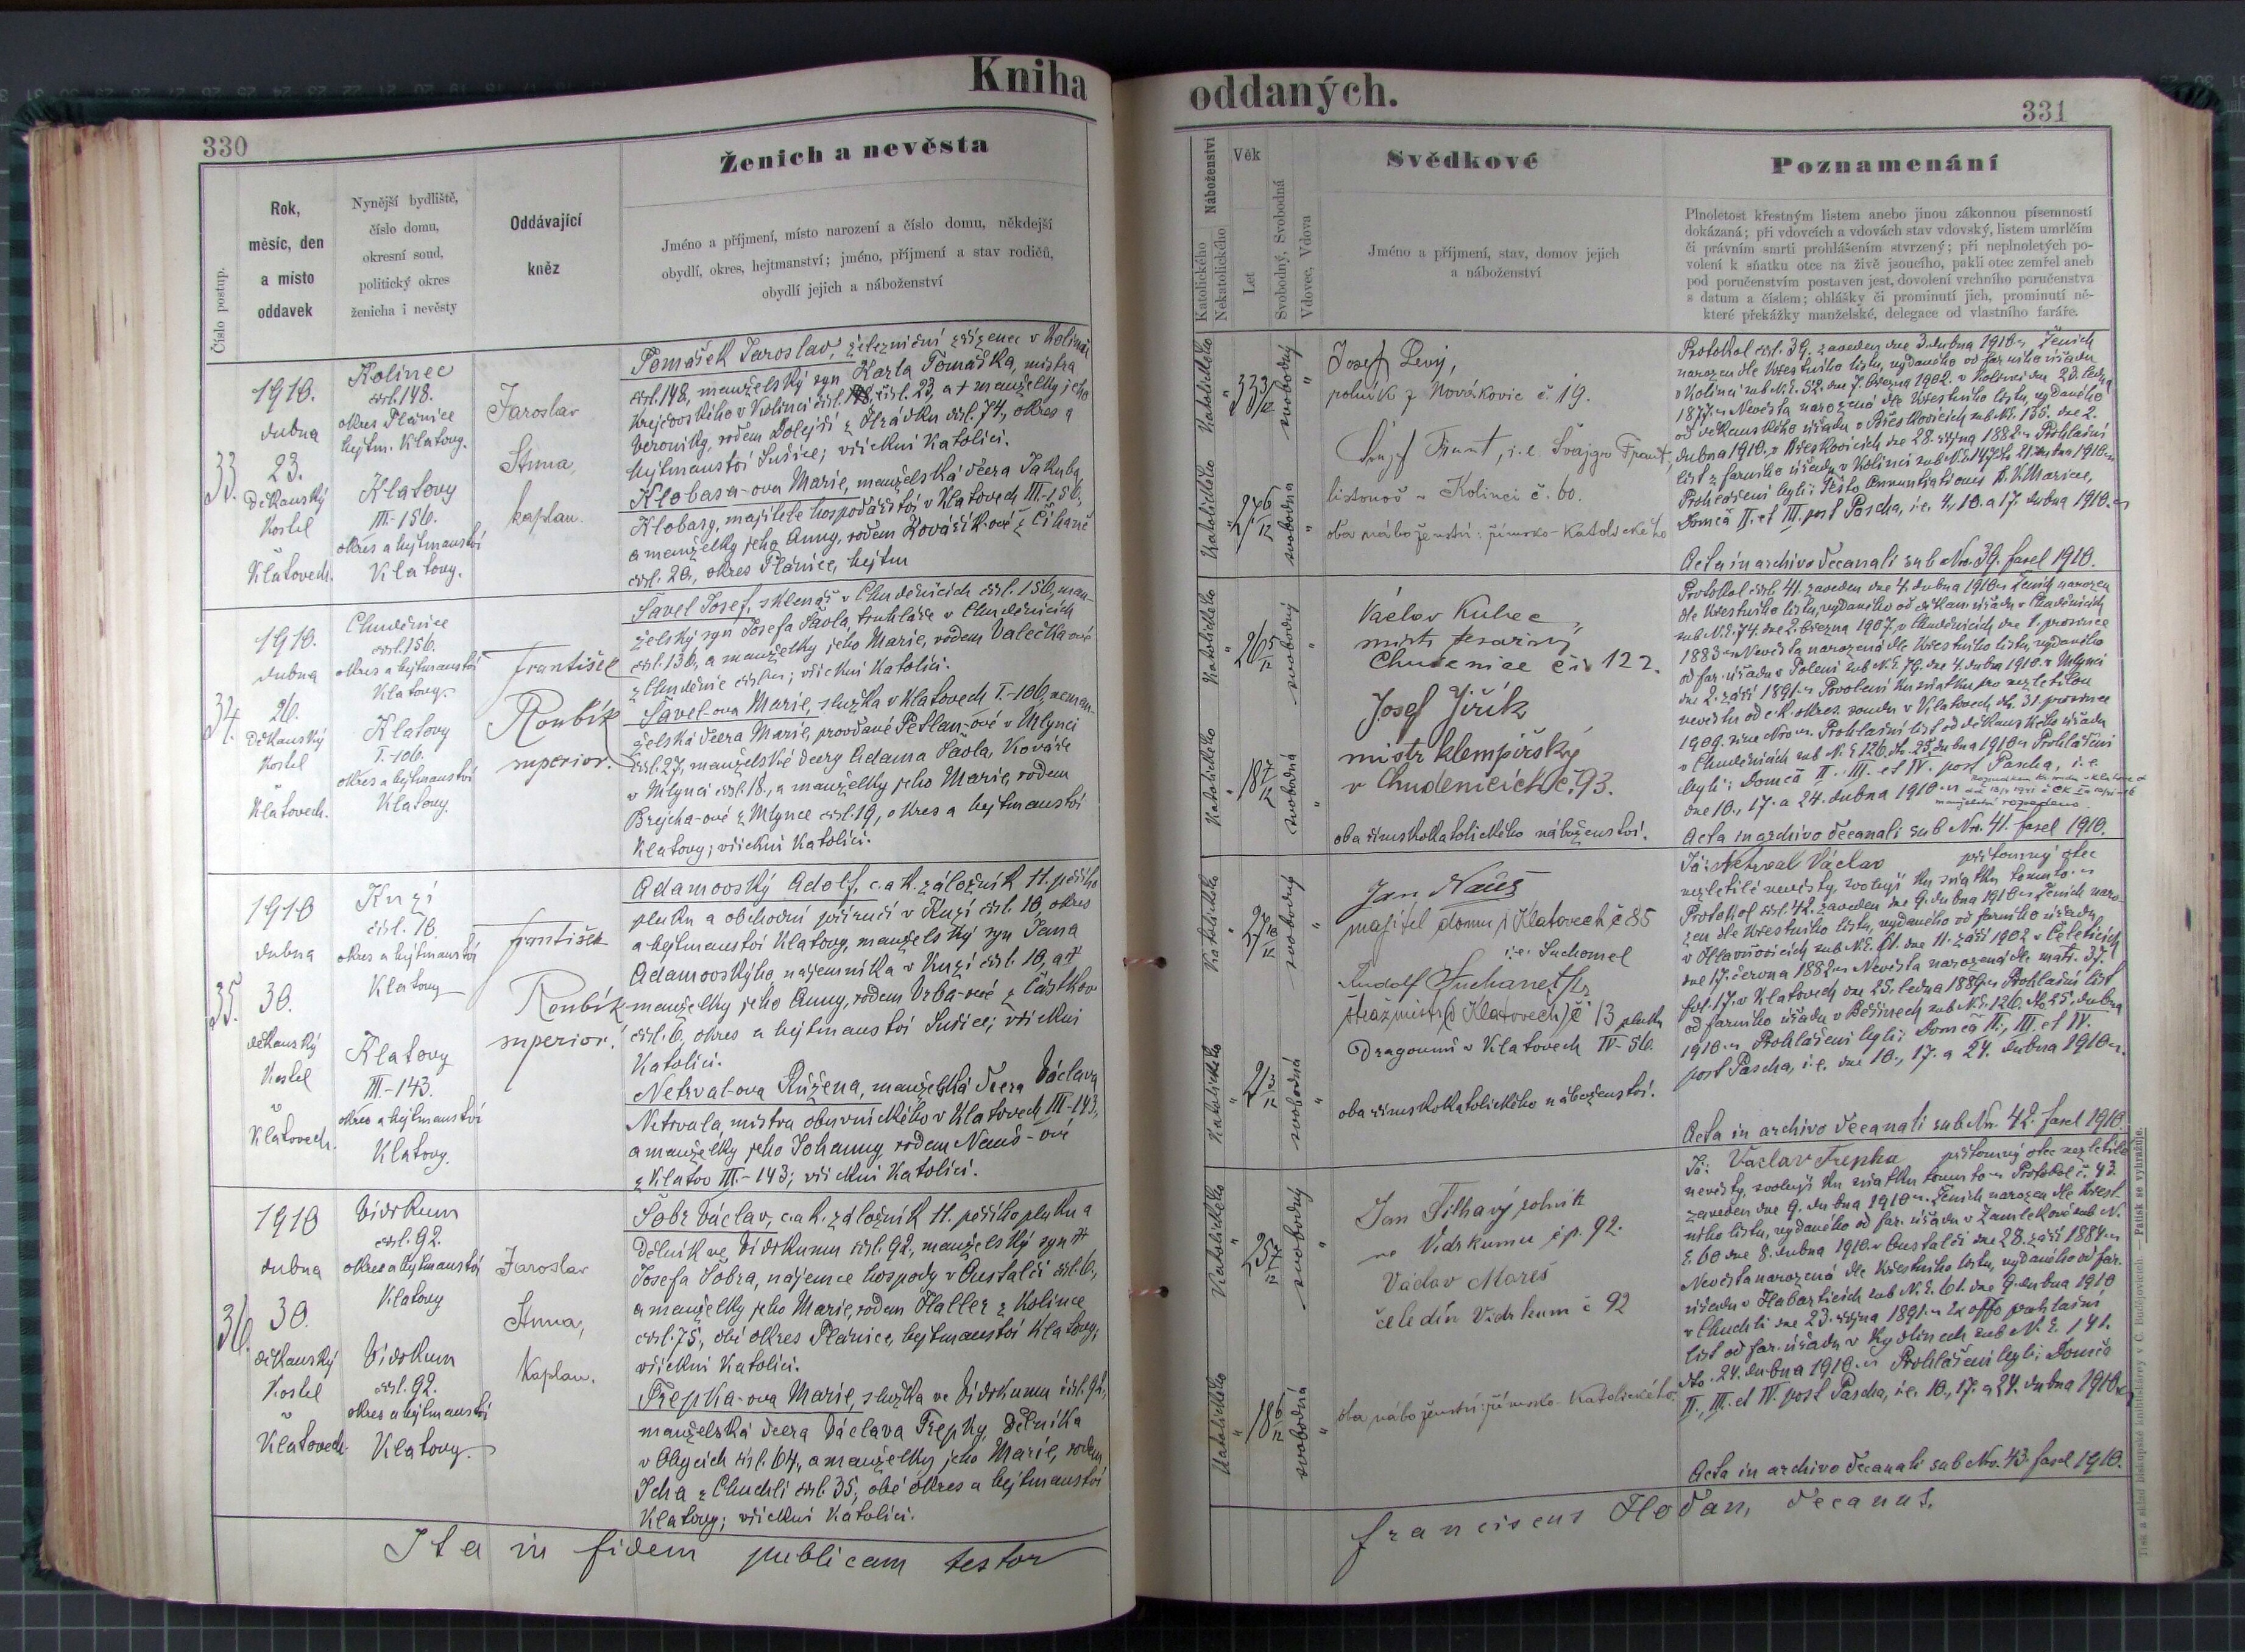 Kniha
oddaných.
330
331
Číslo postup.
Rok,
měsíc, den
a místo
oddavek
Nynější bydliště,
číslo domu,
okresní soud,
politický okres
ženicha i nevěsty
Oddávající
kněz
Ženich a nevěsta
Jméno a příjmení, místo narození a číslo domu, někdejší
obydlí, okres, hejtmanství; jméno, příjmení a stav rodičů,
obydlí jejich a náboženství
33.
1910.
dubna
23.
Děkanský
kostel
v
Klatovech.
Kolinec
čísl. 148.
okres Plánice
hejtm. Klatovy.
Klatovy
III.-156.
okres a hejtmanství
Klatovy.
Jaroslav
kaplan.
Tomášek Jaroslav, železniční zřízenec v Kolinci
čísl. 148, manželský syn Karla Tomáška, mistra
krejčovského v Kolinci čísl. 23, a † manželky jeho
Veroniky, rodem Dolejší z Hrádku čísl. 74, okres a
hejtmanství Sušice; všickni katolíci.
Klobasa-ova Marie, manželská dcera Jakuba
Klobasy, majitele hospodářství v Klatovech III.-156,
a manželky jeho Anny, rodem Kovaříkové z Čihaně
čísl. 20, okres Plánice, hejtm
34.
1910.
dubna
26.
Děkanský
kostel
v
Klatovech.
Chudenice
čísl. 156.
okres a hejtmanství
Klatovy
Klatovy
I.-106.
okres a hejtmanství
Klatovy.
František
Roubík
superior.
Šavel Josef, sklenář v Chudenicích čísl. 156, man-
želský syn Josefa Šavla, truhláře v Chudenicích
čísl. 136, a manželky jeho Marie, rodem Valečka-ové
z Chudenic; všickni katolíci.
Šavel-ova Marie, služka v Klatovech I.-106, neman-
želská dcera Marie, provdané Petlan-ové v Mlynci
čísl. 27, manželské dcery Adama Šavla, kováře
v Mlynci čísl. 18., a manželky jeho Marie, rodem
Brejcha-ové z Mlynce čísl. 19, okres a hejtmanství
Klatovy; všickni katolíci.
35.
1910
dubna
30.
děkanský
kostel
v
Klatovech.
čísl. 10.
okres a hejtmanství
Klatovy
Klatovy
III.-143.
okres a hejtmanství
Klatovy.
František
Roubík
superior.
Adamovský Adolf, c. a k. záložník 11. pěšího
pluku a obchodní příručí v čísl. 10, okres
a hejtmanství Klatovy, manželský syn Jana
Adamovského nájemníka v čísl. 10, a †
manželky jeho Anny, rodem Vrba-ové z Částkov
čísl. 6, okres a hejtmanství Sušice; všickni
katolíci.
Netrval-ova Růžena, manželská dcera Václava
Netrvala, mistra obuvnického v Klatovech III-143,
a manželky jeho Johanny, rodem Nauš-ové
z Klatov III.-143; všickni katolíci.
36.
1910
dubna
30.
děkanský
kostel
v
Klatovech
Vidrkum
čísl. 92.
okres a hejtmanství
Klatovy
Vidrkum
čísl. 92.
okres a hejtmanství
Klatovy.
Jaroslav
kaplan.
Šobr Václav, c. a k. záložník 11. pěšího pluku a
dělník ve Vidrkumu čísl. 92., manželský syn †
Josefa Šobra, nájemce hospody v Oustalči čísl. 6,
a manželky jeho Marie, rodem Haller z Kolince
čísl. 75, obé okres Plánice, hejtmanství Klatovy;
všickni katolíci.
Trepka-ova Marie, služka ve Vidrkumu čísl. 92,
manželská dcera Václava Trepky, dělníka
v Obycích čísl. 64, a manželky jeho Marie, rodem
Icha z Chuchli čísl. 35, obé okres a hejtmanství
Klatovy; všickni katolíci.
Ita in fidem publicam testor
Náboženství
Katolického
Nekatolického
Věk
Let
Svobodný, Svobodná
Vdovec, Vdova
Svědkové
Jméno a příjmení, stav, domov jejich
a náboženství
Poznamenání
Plnoletost křestným listem anebo jinou zákonnou písemností
dokázaná; při vdovcích a vdovách stav vdovský, listem umrlčím
či právním smrti prohlášením stvrzený; při neplnoletých po-
volení k sňatku otce na živě jsoucího, pakli otec zemřel aneb
pod poručenstvím postaven jest, dovolení vrchního poručenstva
s datum a číslem; ohlášky či prominutí jich, prominutí ně-
které překážky manželské, delegace od vlastního faráře.
Katolického
33 3/12
svobodný
Katolického
27 6/12
svobodná
Josef Levý,
rolník z Novákovic č. 19.
Frant, i.e. Švajgr Frant,
listonoš v Kolinci č. 60.
oba náboženství: římsko-katolického
Protokol čísl. 39. zaveden dne 3. dubna 1910. Ženich
narozen dle křestního listu, vydaného od farního úřadu
v Kolinci sub N. E. 52. dne 7. března 1902. v Kolinci dne 23. ledna
1877. Nevěsta narozená dle křestního listu, vydaného
od děkanského úřadu v Předslavi sub N. E. 135. dne 2.
dubna 1910. dne 28. října 1882. Prohlašní
list z farního úřadu v Kolinci sub N. E. 147 dto 21. dubna 1910.
Prohlášení byli: Festo Annuntiationis B. V. Mariae,
Domca II. et III. post Pascha, i.e. 4., 10. a 17. dubna 1910.
Acta in archivo decanali sub Nro. 39. fascl 1910.
Katolického
26 5/12
svobodný
Katolického
18 7/12
svobodná
Václav Kubec,
mistr tesařský
Chudenice čís 122.
Josef Jiřík
mistr klempířský
v Chudenicích č. 93.
oba římskokatolického náboženství.
Protokol čísl. 41. zaveden dne 4. dubna 1910. Ženich narozen
dle křestního listu, vydaného od děkan. úřadu v Chudenicích
sub N. E. 74. dne 2. března 1907, v Chudenicích dne 1. prosince
1883. Nevěsta narozená dle křestního listu, vydaného
od far. úřadu v Poleni sub N. E. 79. dne 4. dubna 1910. v Mlynci
dne 2. září 1891. Povolení ku sňatku pro nezletilou
nevěstu od c. k. okres. soudu v Klatovech dto. 31. prosince
1909. sine Nro. Prohlašní list od děkanského úřadu
v Chudenicích sub N. E. 126. dto. 25. dubna 1910. Prohlášení
byli: Domca II., III. et IV. post Pascha, i.e.
dne 10., 17. a 24. dubna 1910.
manželství rozvedeno.
Acta in archivo decanali sub Nro. 41. fascl 1910.
Katolického
27 10/12
svobodný
Katolického
21 3/12
svobodná
Jan Nauš
majitel domu v Klatovech č 85
i.e. Suchomel
Rudolf
strážmistr (v Klatovech) č 13 pluku
Dragounů v Klatovech IV-56.
oba římskokatolického náboženství.
Já: Netrval Václav přítomný otec
nezletilé nevěsty, svoluji ku sňatku tomuto.
Protokol čísl. 42. zaveden dne 9. dubna 1910. Ženich naro-
zen dle křestního listu, vydaného od farního úřadu
v Hlavňovicích sub N. E. 61. dne 11. září 1902 v Čeleticích
dne 17. června 1882. Nevěsta narozená dle matr. 37.
fol. 17. v Klatovech dne 25. ledna 1889. Prohlašní list
od farního úřadu v Běšinech sub N. E. 126. dto 25. dubna
1910. Prohlášeni byli: Domca II., III. et IV.
post Pascha, i.e. dne 10., 17. a 24. dubna 1910.
Acta in archivo decanali sub Nr. 42. fascl 1910.
Katolického
25
svobodný
Katolického
18 6/12
svobodná
Jan Tilhavý rolník
ve Vidrkumu čp. 92.
Václav Mareš
čeledín Vidrkum č 92
oba náboženství: římsko-katolického.
Já: Václav Trepka přítomný otec nezletilé
nevěsty, svoluji ku sňatku tomuto. Protokol č. 43.
zaveden dne 9. dubna 1910. Ženich narozen dle křest-
ního listu, vydaného od far. úřadu v Zamlekově sub N.
E. 60 dne 8. dubna 1910. v Oustalči dne 28. září 1884.
Nevěsta narozená dle křestního listu, vydaného od far.
úřadu v Habarticích sub N. E. 61. dne 9. dubna 1910
v Chuchli dne 23. října 1891. Ex offo prohlašní
list od far. úřadu v Kydlinech sub N. E. 141.
dto. 24. dubna 1910. Prohlášeni byli: Domca
II., III. et IV. post Pascha, i.e. 10., 17. a 24. dubna 1910.
Acta in archivo decanali sub Nro. 43. fascl 1910.
Franciscus Hodan, decanus.
Tisk a sklad biskupské knihtiskárny v Č. Budějovicích. — Patisk se vyhražuje.